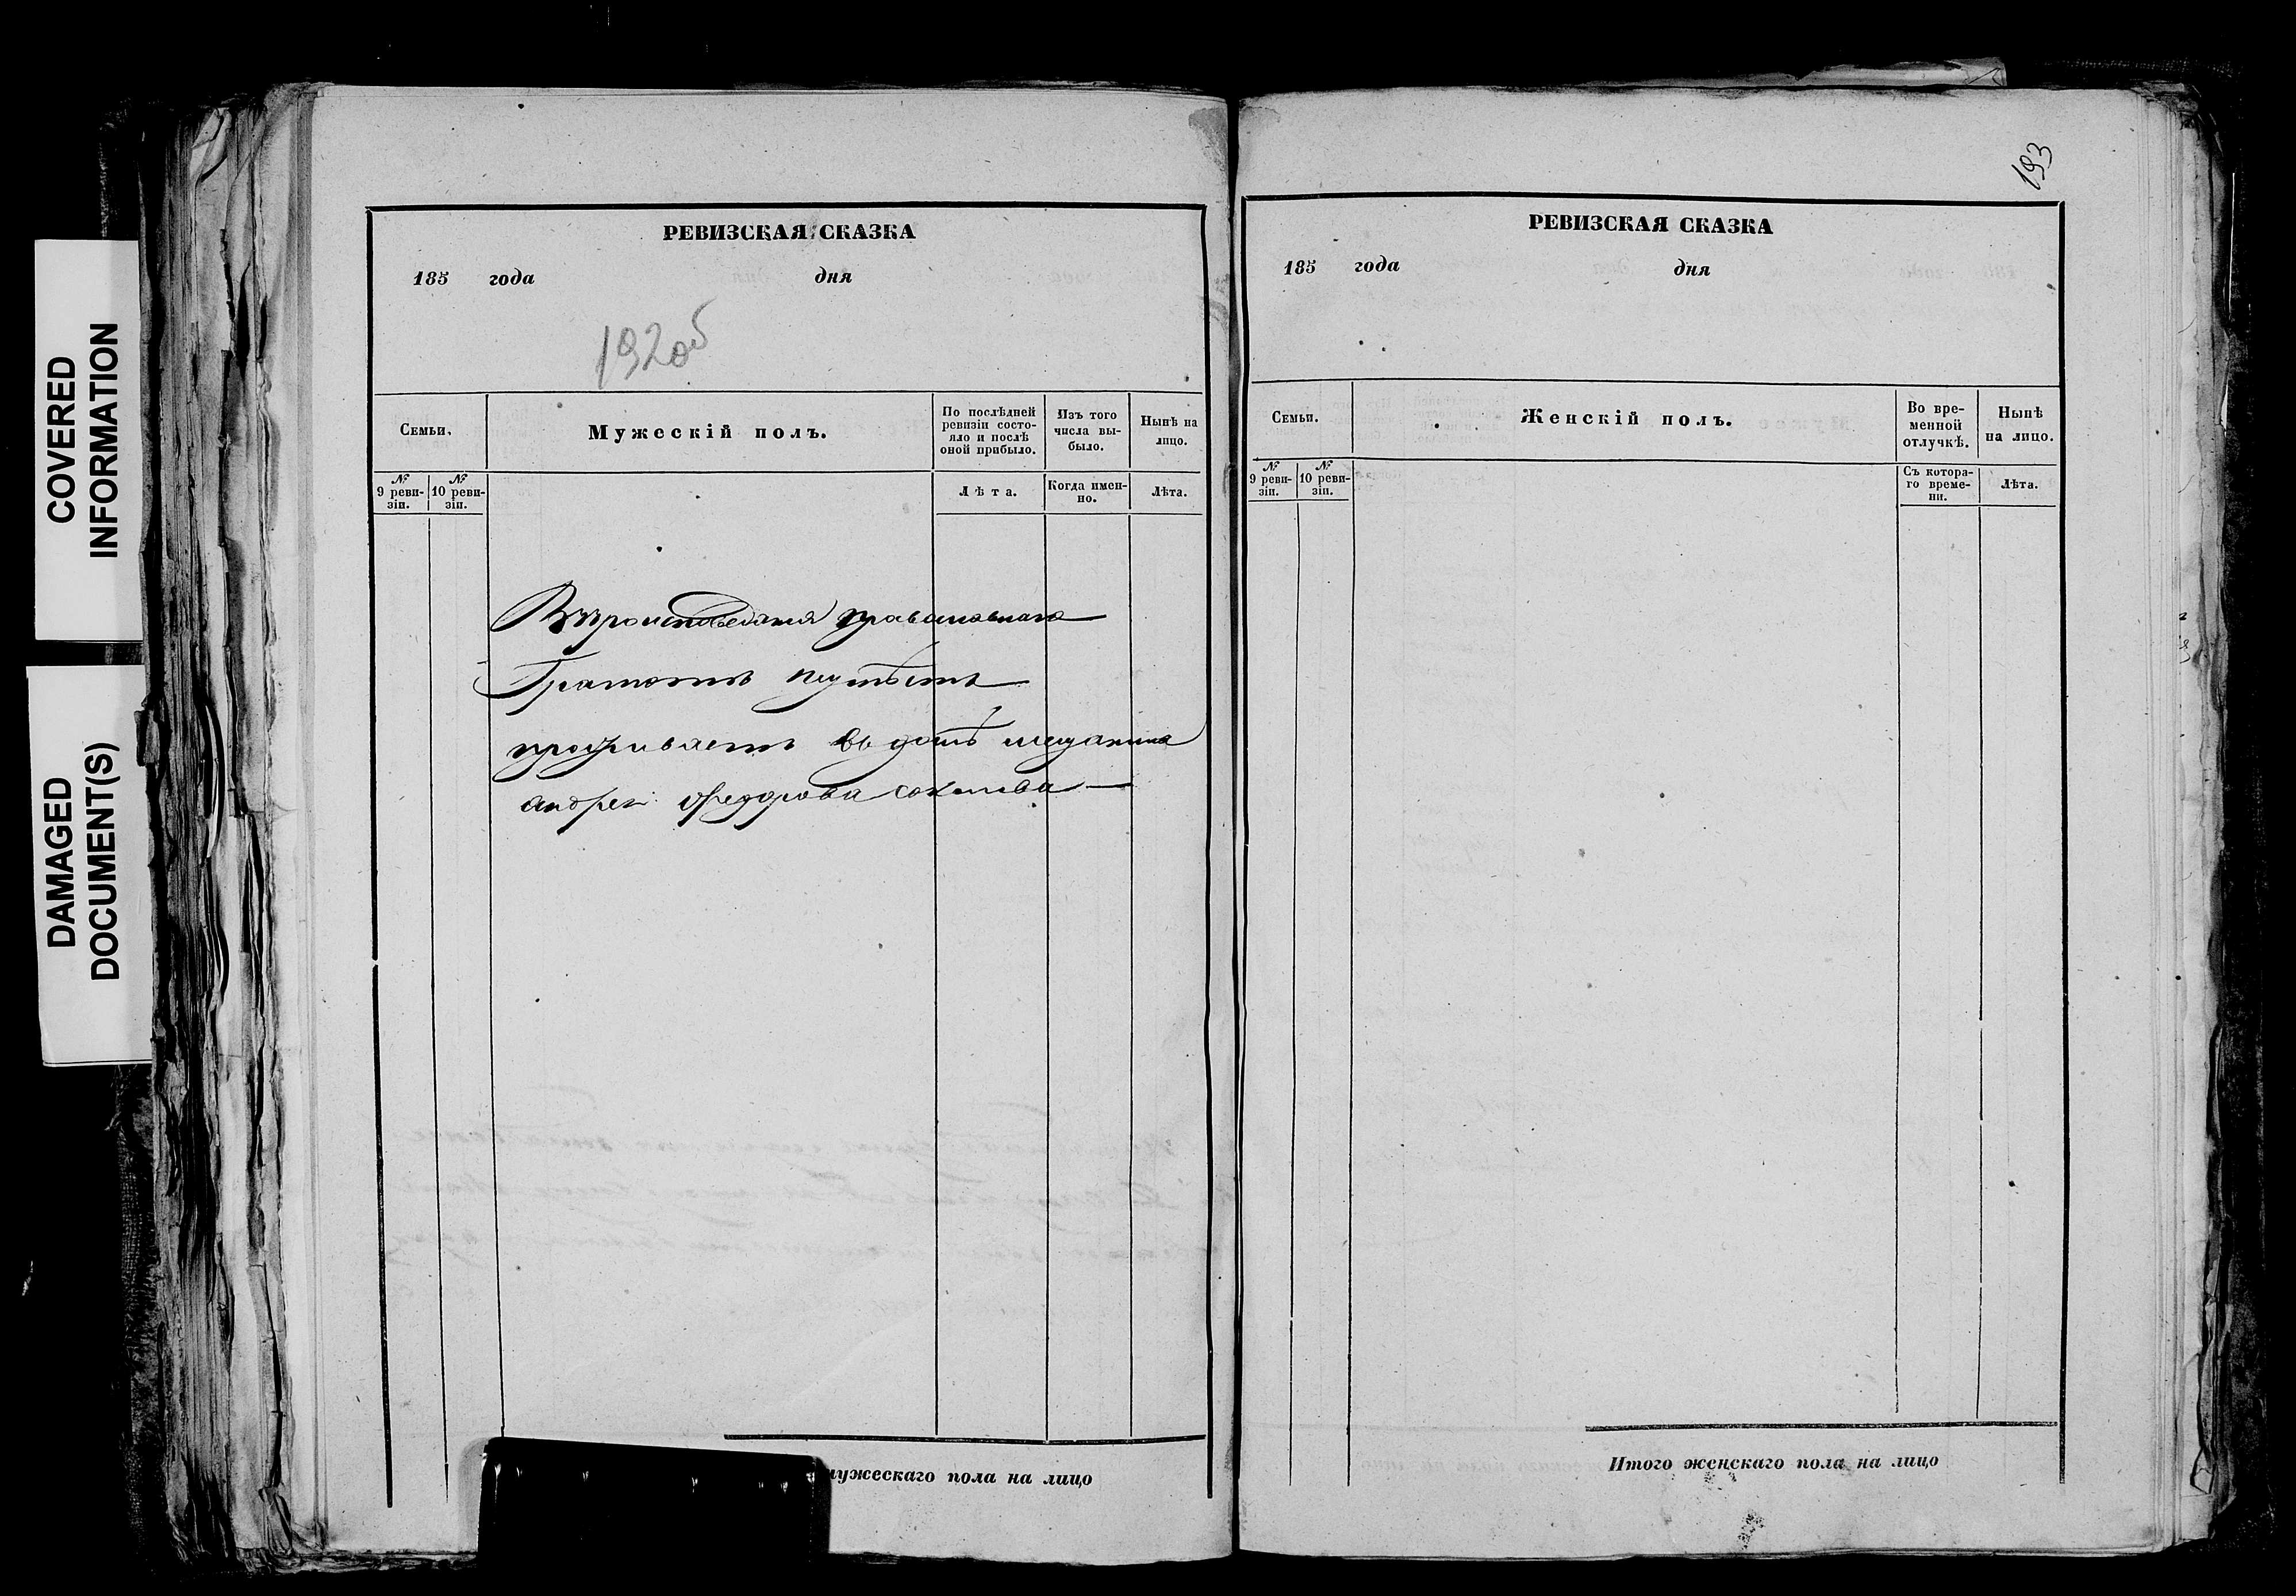 COVERED
INFORMATION
DAMAGED
DOCUMENT(S)
РЕВИЗСКАЯ СКАЗКА
185 года дня
192об
Семьи.
Мужескій полъ.
По послѣдней
ревизіи состо-
яло и послѣ
оной прибыло.
Изъ того
числа вы-
было.
Нынѣ на
лицо.
№
9 реви-
зіи.
№
10 реви-
зіи.
Лѣта.
Когда имен-
но.
Лѣта.
Вѣроисповеданія православнаго
Грамотѣ неумѣетъ
проживаетъ въ домѣ мещанина
андрея Федорова
мужескаго пола на лицо
193
РЕВИЗСКАЯ СКАЗКА
185 года дня
Семьи.
Женскій полъ.
Во вре-
менной
отлучкѣ.
Нынѣ
на лицо.
№
9 реви-
зіи.
№
10 реви-
зіи.
Съ котора-
го време-
ни.
Лѣта.
Итого женскаго пола на лицо